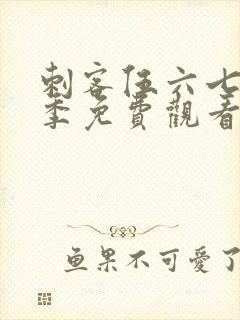 刺客伍六七
季免費觀看
鱼果不可愛了